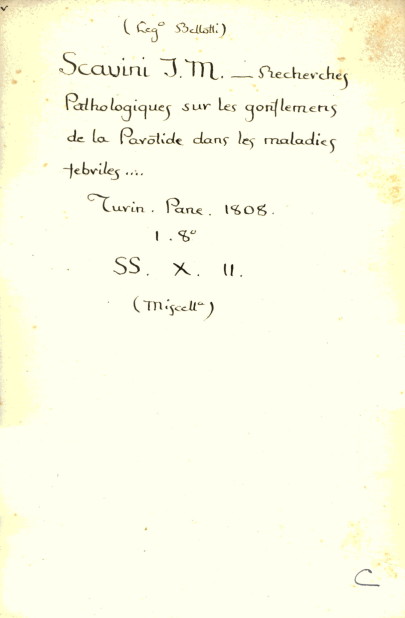 (Leg° Bellotti)
Scavini J.M. — Recherches
Pathologiques sur les gonflemens
de la Parotide dans les maladies
febriles....
Turin. Pane. 1808.
1. 8°
SS. X. 11.
(Miscellª)
C